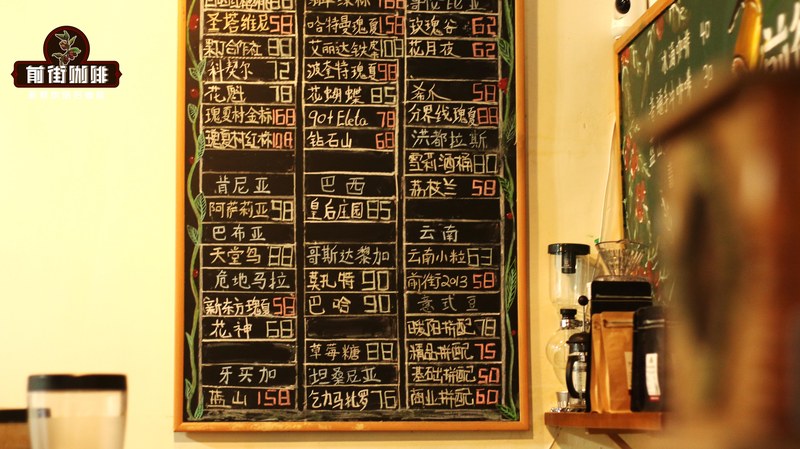 前街咖啡
圣塔维尼 58
哈特曼瑰夏 158
玫瑰谷 62
艾丽达铁皮 108
花月夜 62
科契尔 72
波奎特瑰夏 98
花魁 78
花蝴蝶 85
希爪 58
瑰夏村金标 168
90+ Eleta 78
分界线瑰夏 88
瑰夏村红标 108
钻石山 68
洪都拉斯
雪莉酒桶 80
荔枝兰 58
肯尼亚
巴西
阿萨莉亚 98
皇后庄园 85
巴布亚
云南
天堂鸟 88
哥斯达黎加
云南小粒 63
危地马拉
莫扎特 90
前街2013 58
新东方瑰夏 58
巴哈 90
意式豆
花神 68
暖阳拼配 78
草莓糖 88
精品拼配 75
牙买加
坦桑尼亚
基础拼配 50
蓝山 158
乞力马扎罗 76
商业拼配 60